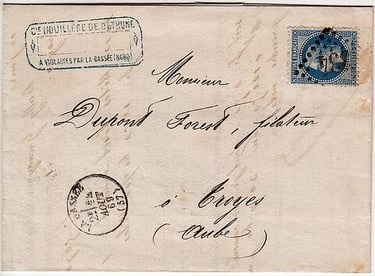 CIE HOUILLÈRE DE BÉTHUNE
A VIOLAINES PAR LA BASSÉE (NORD)
Monsieur
Dupont Forest, filateur
à Troyes
(Aube)
LA BASSÉE
AOUT
69
(57)